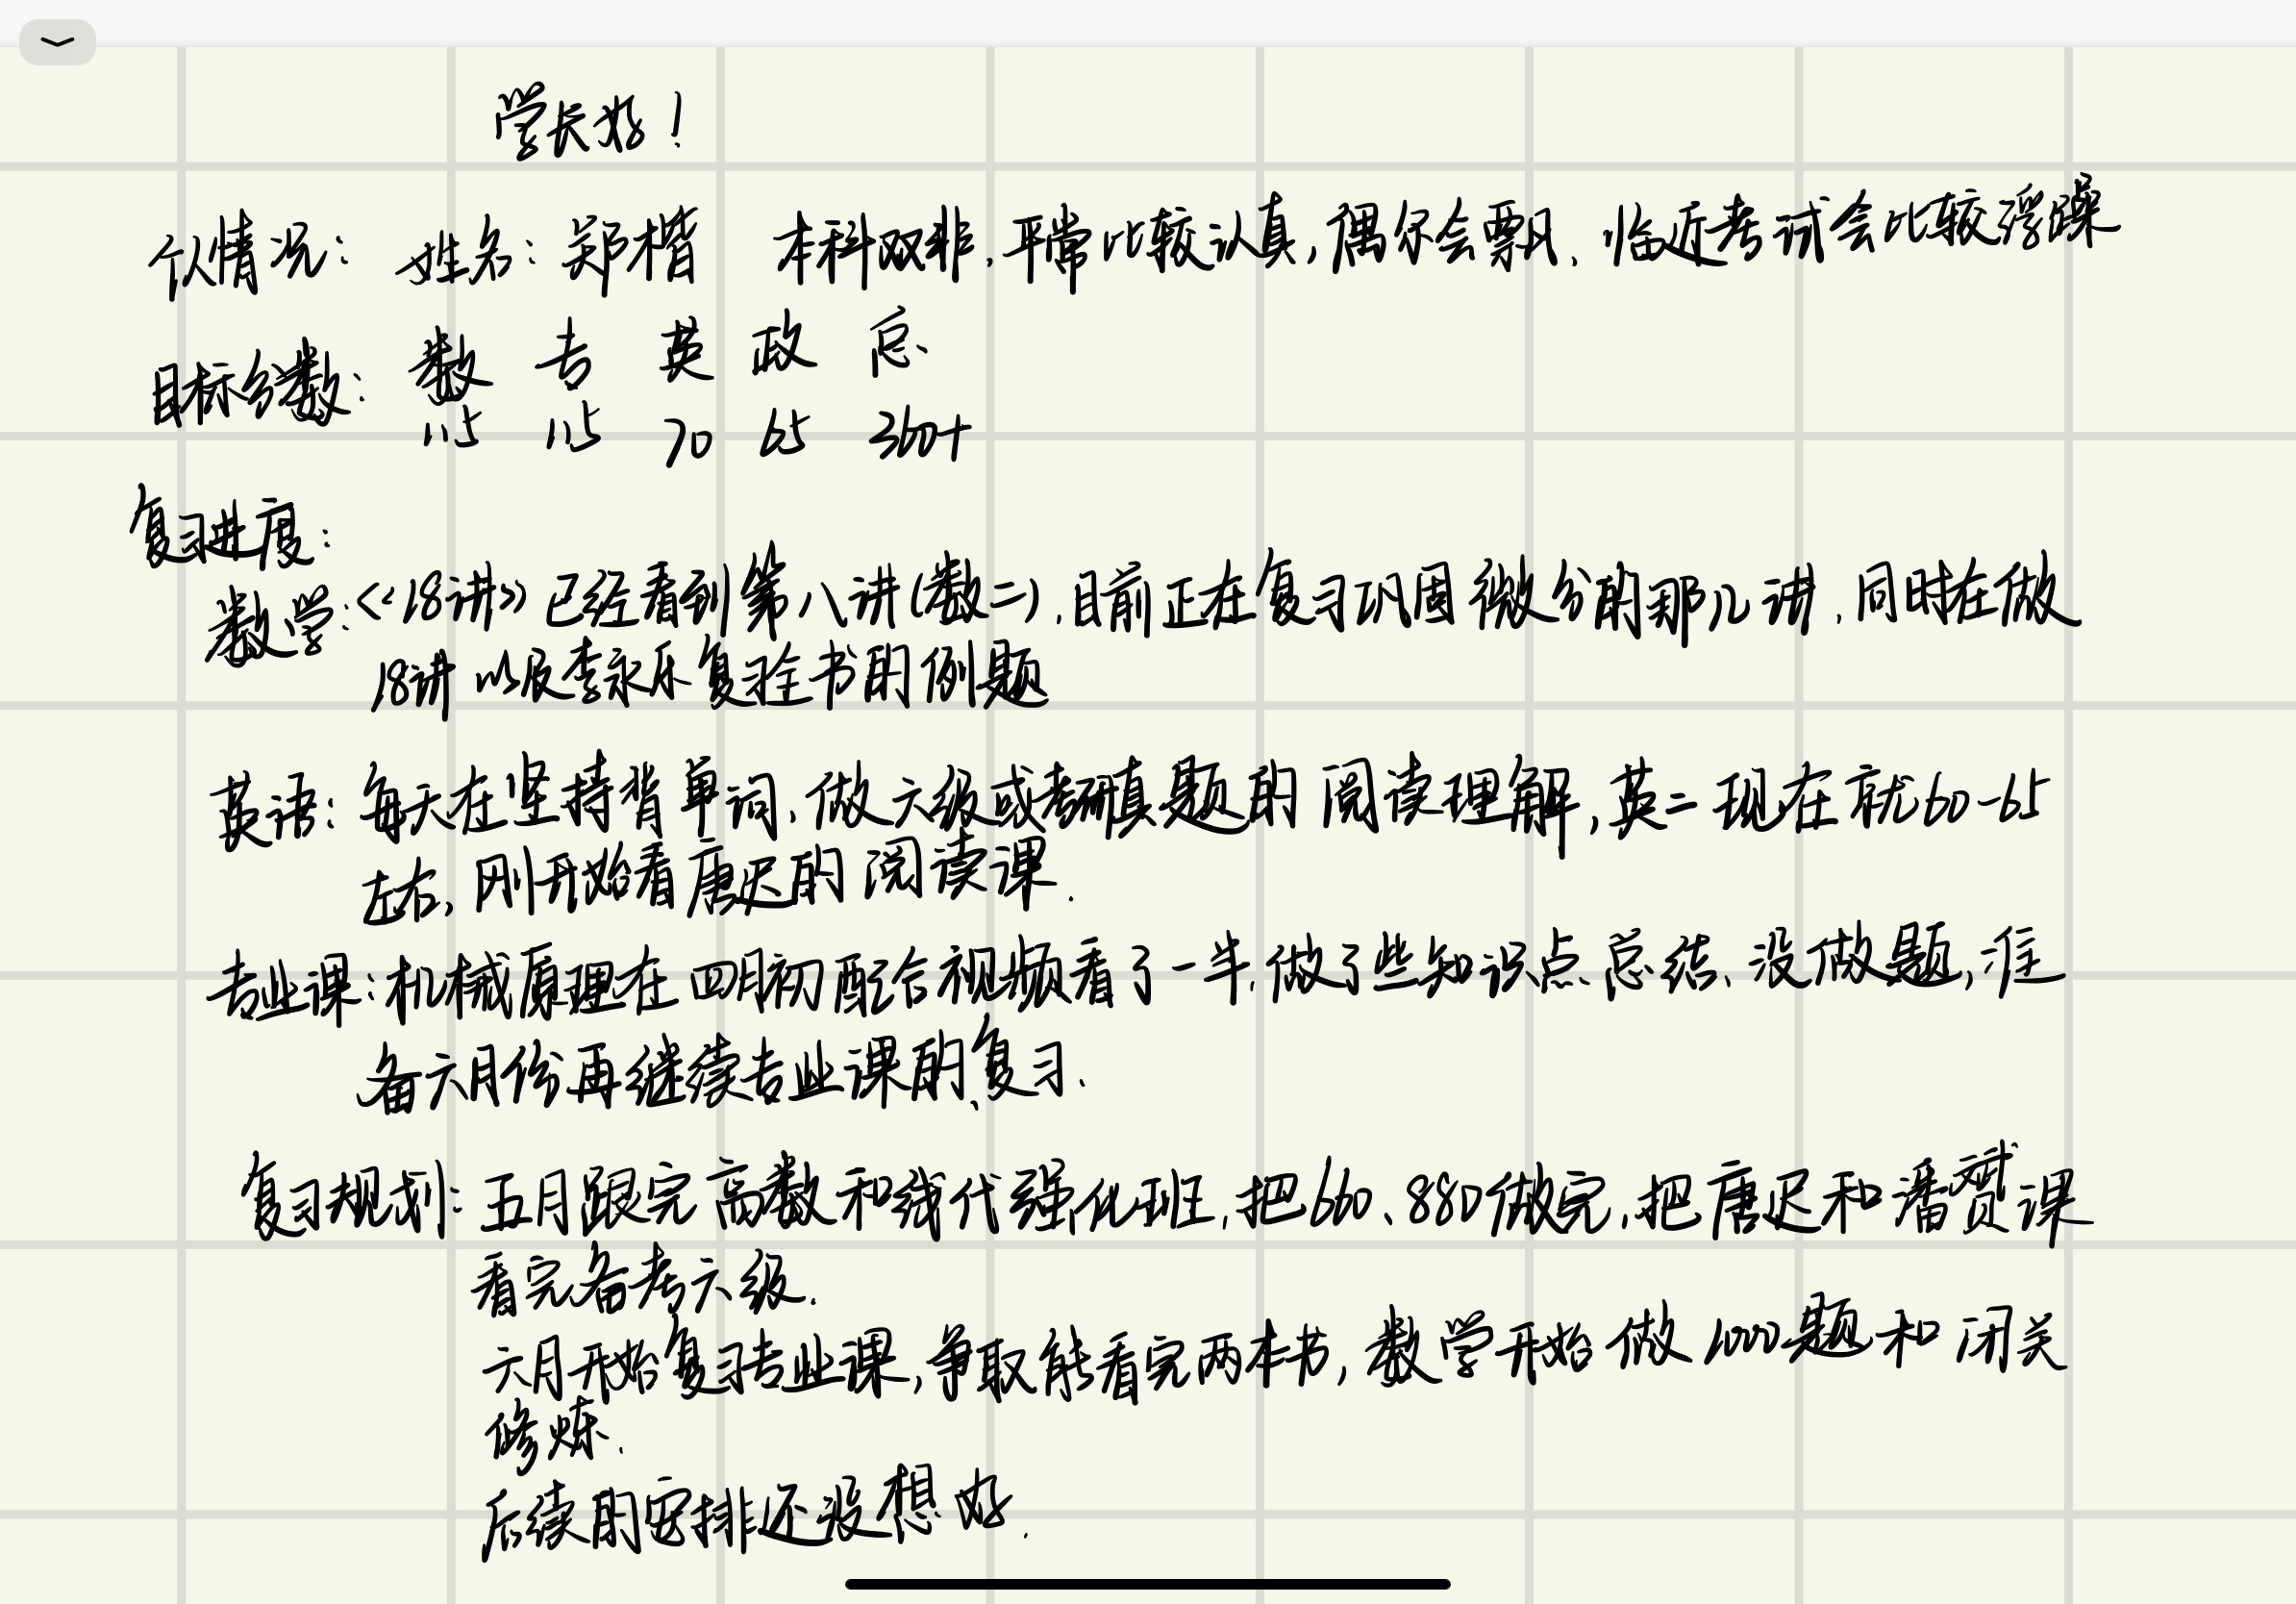 学长好！
个人情况： 姓名：郑楷 本科双非，平常比较认真，偶尔会飘、临近考试会比较浮躁
目标分数： 数 专 英 政 总
115 115 70 65 360+
复习进度：
数学：《18讲》已经看到第八讲(数二)，目前正在复习巩固微分的那几讲，同时在做
18讲以及李永乐复习全书的例题
英语：每天在坚持背单词，做六级或考研真题的阅读理解，英二现在就60-65
左右，刚开始看唐迟的阅读课.
专业课：机械原理在四月初配合视频看了一半，做了些知识点总结、没做题，准
备六月份再继续专业课的复习.
复习规划：五月跟完高数和线代强化班，把660、880做完，把唐迟和潘赟课
看完备考六级.
六月开始复习专业课，争取能看完两本书，数学开始做1000题和闭关
修炼.
后续的安排还没想好.